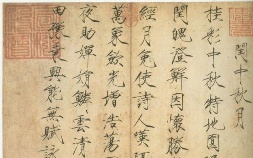 閏中秋月
桂彩中秋特地圓
閏魄澄鮮因懷勝
經月免使詩人嘆
萬象斂光增浩蕩
夜助嬋娟鱗雲清
田豁乘興能無賦詠